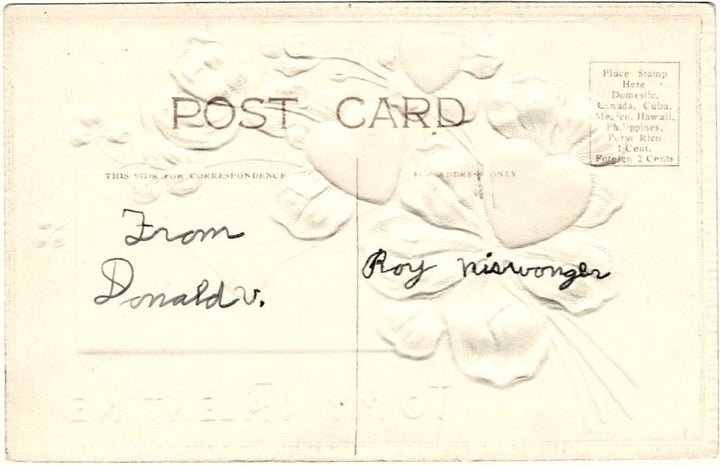 POST CARD
Place Stamp
Here
Domestic,
Canada, Cuba,
Mexico, Hawaii,
Philippines,
Porto Rico
1 Cent.
Foreign 2 Cents
THIS SIDE FOR CORRESPONDENCE
FOR ADDRESS ONLY
From
Donald V.
Roy Niswonger
TO MY VALENTINE